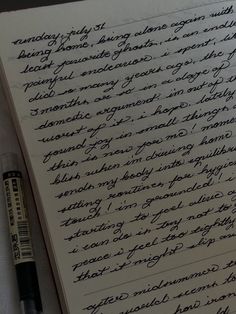 sunday, july 31
being home, being alone again with
least favourite ghosts, is an endless
painful endeavor. i spent, like
did so many years ago, the
3 months or so in a slope of
domestic argument. im out of the
worst of it, i hope. lately
found joy in small things,
this is new for me! mome
blish when im driving home
sends my body into equilibri
sitting routines, for hygien
touch! i'm grounded! i
starting to feel alive
i can do is try not to
peace i feel too tightly
that it might slip
after midsummer
world seems to
how iron